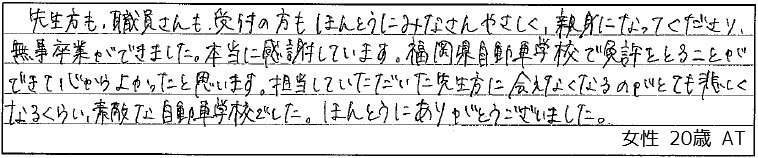 先生方も、職員さんも、受付の方もほんとうにみなさんやさしく、親身になってくださり、
無事卒業ができました。本当に感謝しています。福岡県自動車学校で免許をとることが
できて心からよかったと思います。担当していただいた先生方に会えなくなるのがとても悲しく
なるくらい、素敵な自動車学校でした。ほんとうにありがとうございました。
女性 20歳 AT